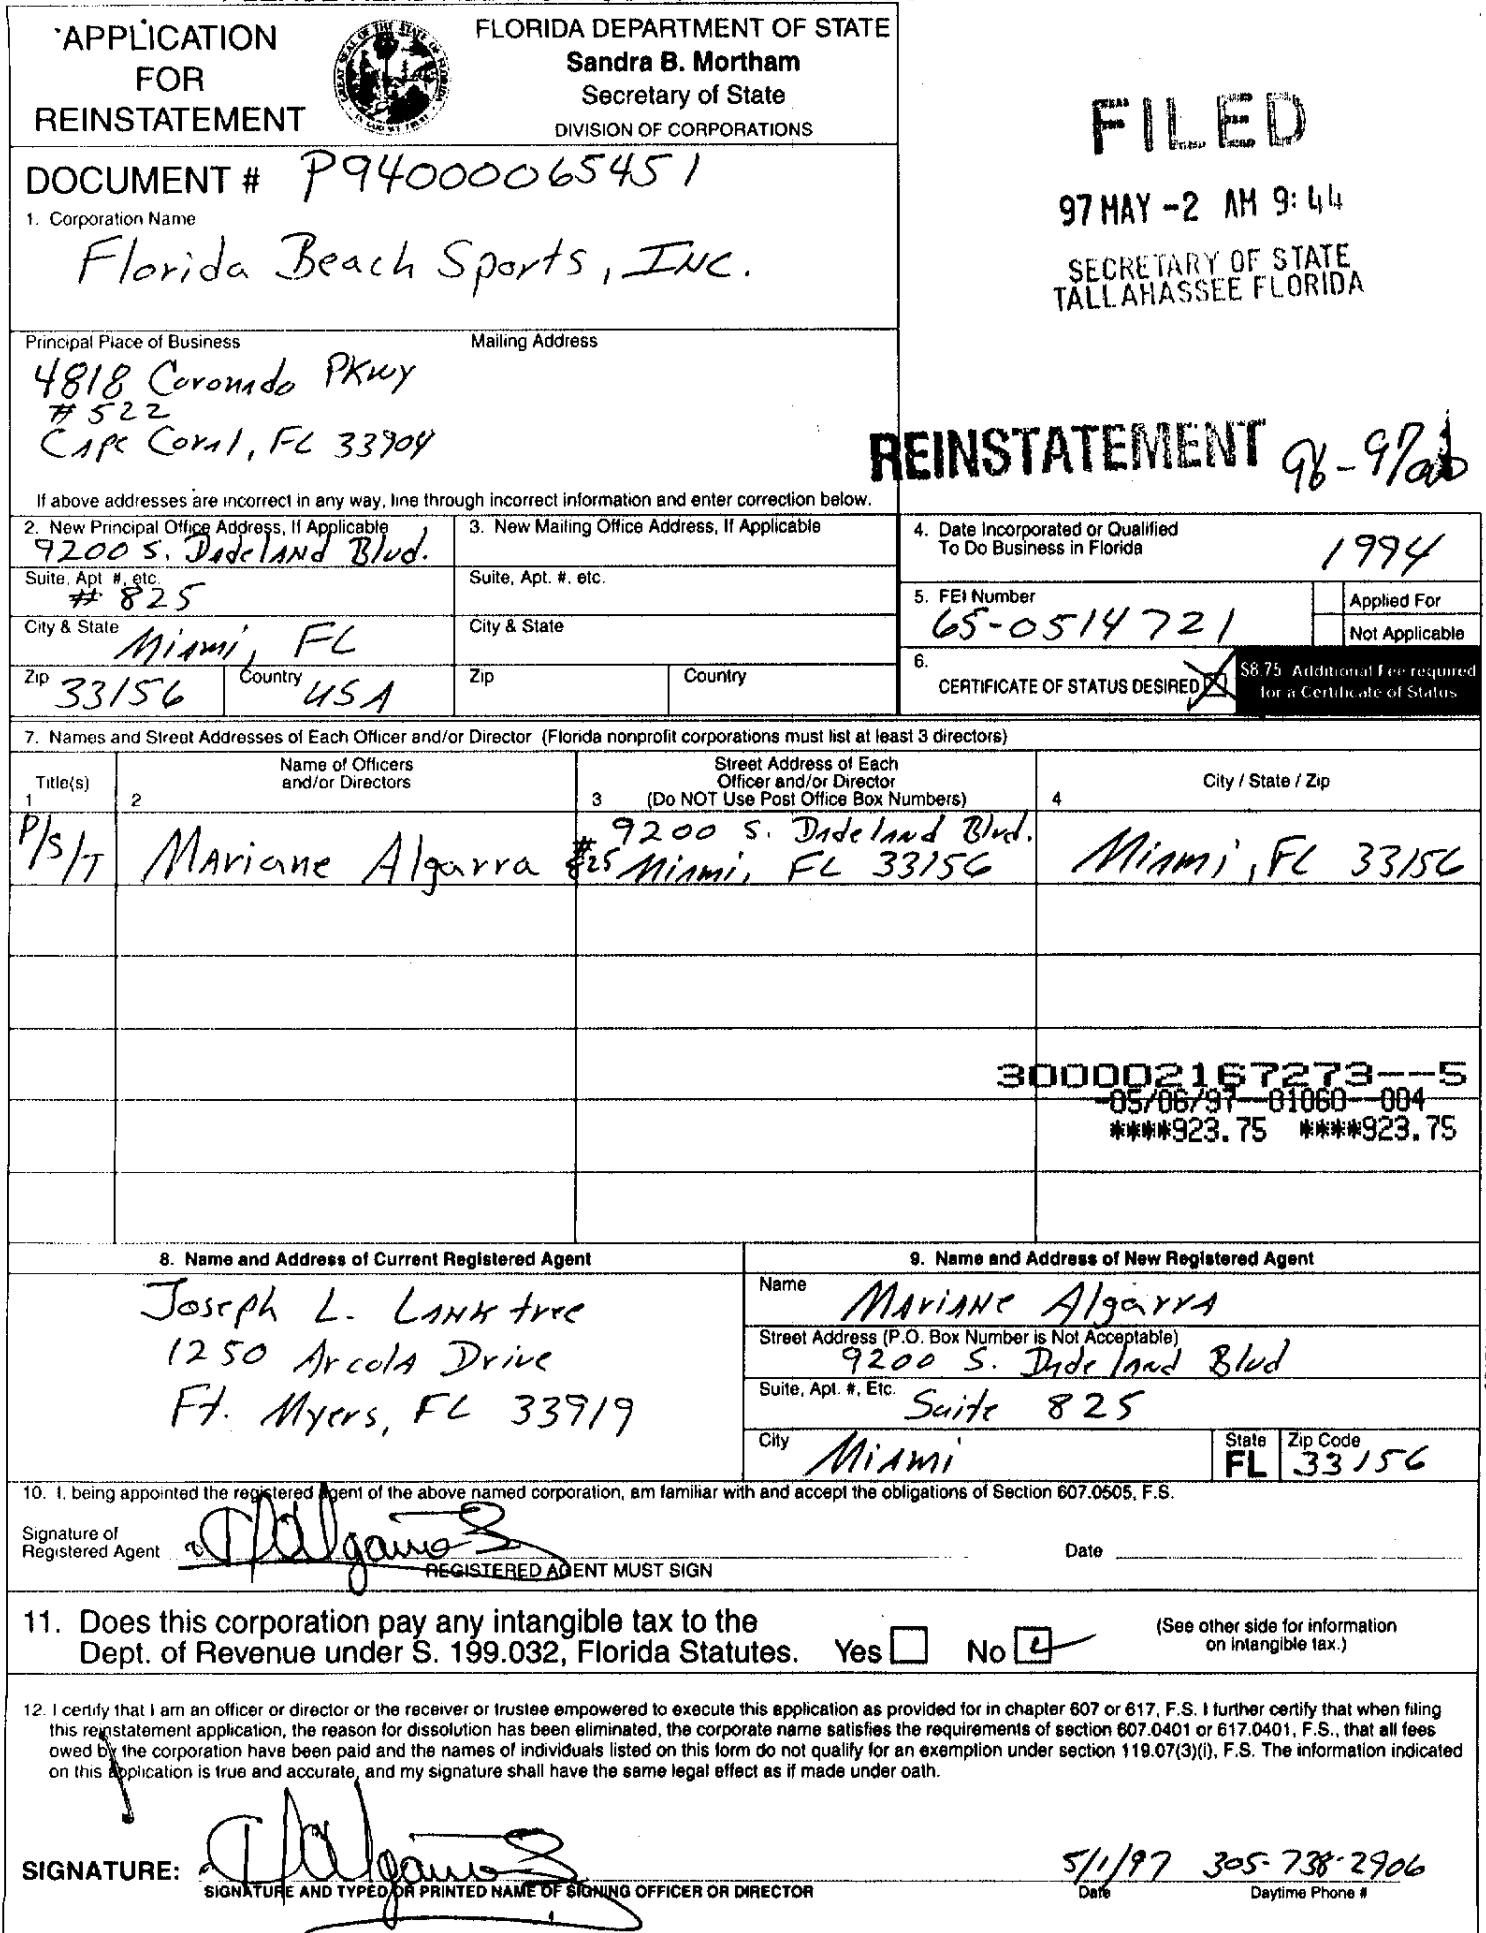 APPLICATION
FOR
REINSTATEMENT
FLORIDA DEPARTMENT OF STATE
Sandra B. Mortham
Secretary of State
DIVISION OF CORPORATIONS
FILED
97 MAY -2 AM 9:44
SECRETARY OF STATE
TALLAHASSEE FLORIDA
DOCUMENT # P94000065451
1. Corporation Name
Florida Beach Sports, INC.
Principal Place of Business
Mailing Address
4818 Coronado PKwy
# 522
Cape Coral, FL 33904
REINSTATEMENT 96-97
If above addresses are incorrect in any way, line through incorrect information and enter correction below.
2. New Principal Office Address, If Applicable
9200 S. Dadeland Blvd.
3. New Mailing Office Address, If Applicable
Suite, Apt #, etc.
# 825
Suite, Apt. #, etc.
City & State
Miami, FL
City & State
Zip 33156
Country USA
Zip
Country
4. Date Incorporated or Qualified
To Do Business in Florida
1994
5. FEI Number
65-0514721
Applied For
Not Applicable
6.
CERTIFICATE OF STATUS DESIRED
$8.75 Additional Fee required
for a Certificate of Status
7. Names and Street Addresses of Each Officer and/or Director (Florida nonprofit corporations must list at least 3 directors)
Title(s)
1
Name of Officers
and/or Directors
2
Street Address of Each
Officer and/or Director
3 (Do NOT Use Post Office Box Numbers)
City / State / Zip
4
P/S/T
Mariane Algarra
9200 S. Dadeland Blvd.
#825 Miami, FL 33156
Miami, FL 33156
300002167273--5
-05/06/97--01060--004
****923.75 ****923.75
8. Name and Address of Current Registered Agent
Joseph L. Lanktree
1250 Arcola Drive
Ft. Myers, FL 33919
9. Name and Address of New Registered Agent
Name
Mariane Algarra
Street Address (P.O. Box Number is Not Acceptable)
9200 S. Dadeland Blvd
Suite, Apt. #, Etc.
Suite 825
City
Miami
State
FL
Zip Code
33156
10. I, being appointed the registered agent of the above named corporation, am familiar with and accept the obligations of Section 607.0505, F.S.
Signature of
Registered Agent
REGISTERED AGENT MUST SIGN
Date
11. Does this corporation pay any intangible tax to the
Dept. of Revenue under S. 199.032, Florida Statutes. Yes No
(See other side for information
on intangible tax.)
12. I certify that I am an officer or director or the receiver or trustee empowered to execute this application as provided for in chapter 607 or 617, F.S. I further certify that when filing
this reinstatement application, the reason for dissolution has been eliminated, the corporate name satisfies the requirements of section 607.0401 or 617.0401, F.S., that all fees
owed by the corporation have been paid and the names of individuals listed on this form do not qualify for an exemption under section 119.07(3)(i), F.S. The information indicated
on this application is true and accurate, and my signature shall have the same legal effect as if made under oath.
SIGNATURE:
SIGNATURE AND TYPED OR PRINTED NAME OF SIGNING OFFICER OR DIRECTOR
5/1/97
Date
305-738-2906
Daytime Phone #